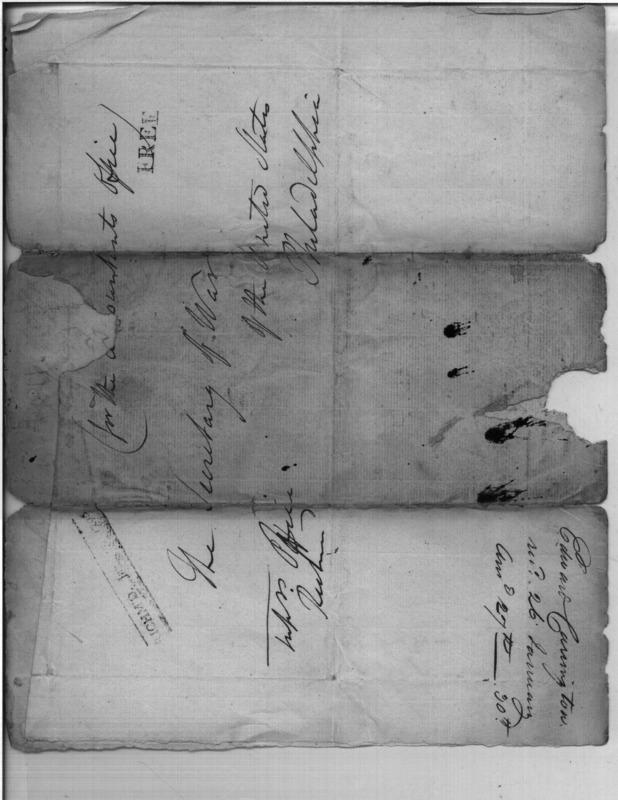 (for the accountants office)
FREE
The Secretary of War
of the United States
Philadelphia
Office
RICHM'D,
Edward Carrington.
26 January
Ans'd 27th